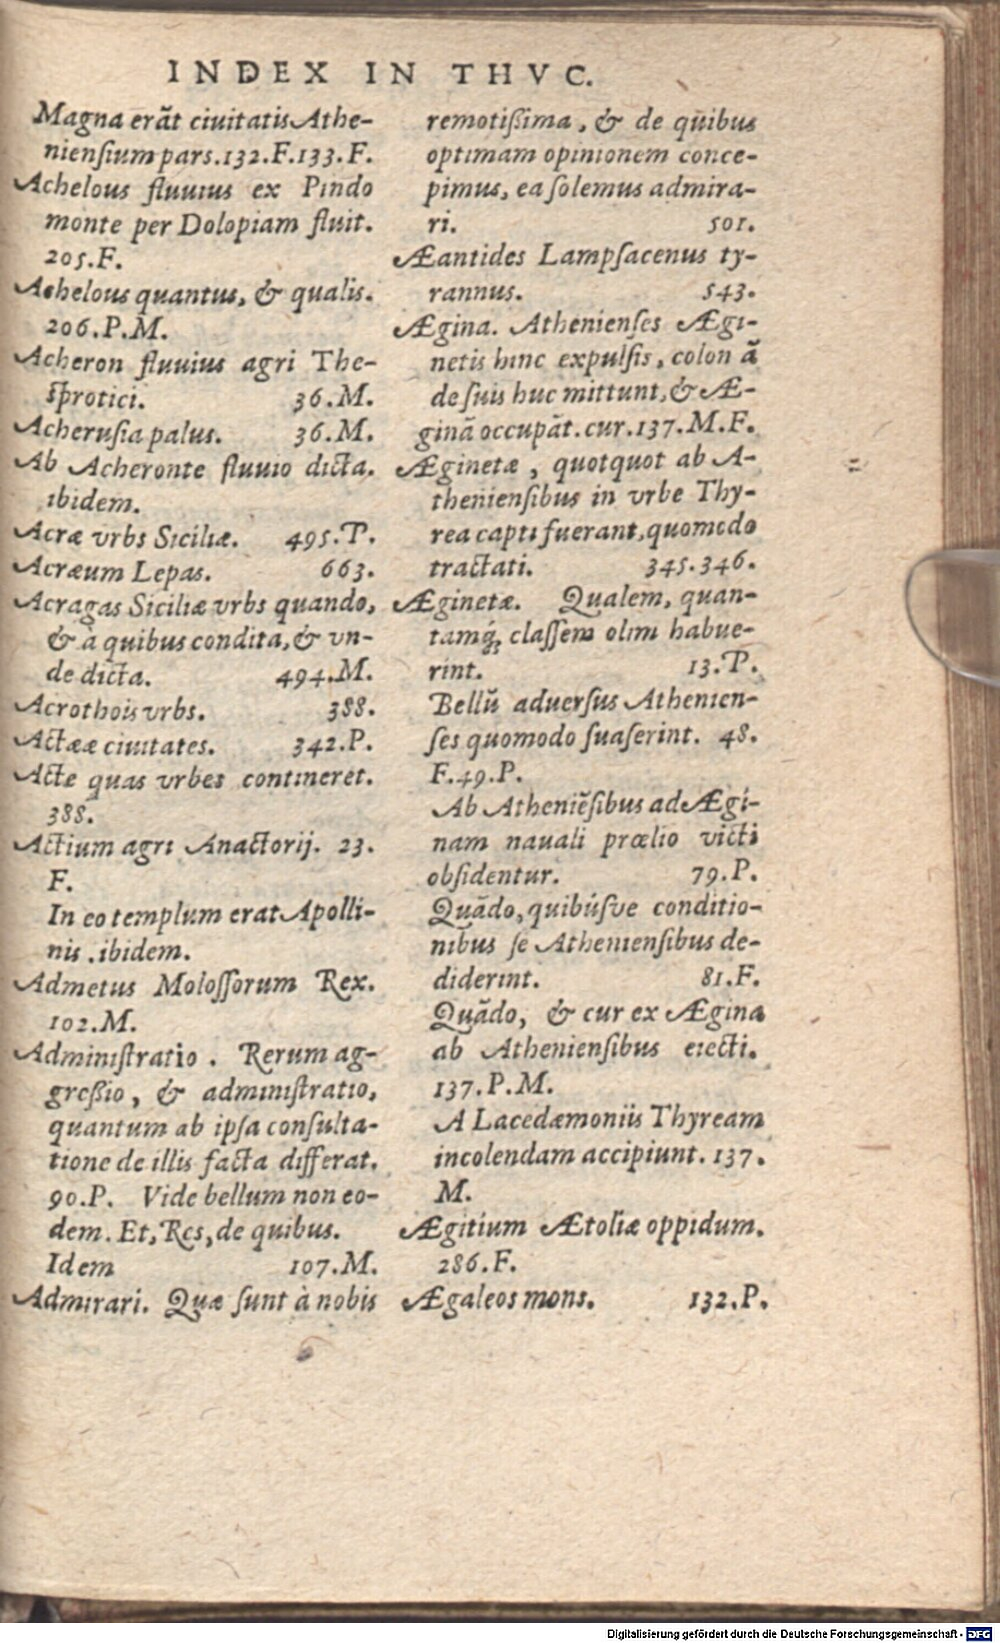 INDEX IN THVC.
Magna erāt ciuitatis Athe-
nienſium pars. 132. F. 133. F.
Achelous fluuius ex Pindo
monte per Dolopiam fluit.
205. F.
Achelous quantus, & qualis.
206. P. M.
Acheron fluuius agri The-
ſprotici. 36. M.
Acheruſia palus. 36. M.
Ab Acheronte fluuio dicta.
ibidem.
Acræ vrbs Siciliæ. 495. P.
Acræum Lepas. 663.
Acragas Siciliæ vrbs quando,
& à quibus condita, & vn-
de dicta. 494. M.
Acrothois vrbs. 388.
Actææ ciuitates. 342. P.
Acte quas vrbes contineret.
388.
Actium agri Anactorij. 23.
F.
In eo templum erat Apolli-
nis. ibidem.
Admetus Moloſſorum Rex.
102. M.
Adminiſtratio. Rerum ag-
greßio, & adminiſtratio,
quantum ab ipſa conſulta-
tione de illis facta differat.
90. P. Vide bellum non eo-
dem. Et, Res, de quibus.
Idem 107. M.
Admirari. Quæ ſunt à nobis
remotißima, & de quibus
optimam opinionem conce-
pimus, ea ſolemus admira-
ri. 501.
Æantides Lampſacenus ty-
rannus. 543.
Ægina. Athenienſes Ægi-
netis hinc expulſis, colon ā
de ſuis huc mittunt, & Æ-
ginā occupāt. cur. 137. M. F.
Æginetæ, quotquot ab A-
thenienſibus in vrbe Thy-
rea capti fuerant, quomodo
tractati. 345. 346.
Æginetæ. Qualem, quan-
tamq́; claſſem olim habue-
rint. 13. P.
Bellū aduerſus Athenien-
ſes quomodo ſuaſerint. 48.
F. 49. P.
Ab Atheniēſibus ad Ægi-
nam nauali prœlio victi
obſidentur. 79. P.
Quādo, quibúſve conditio-
nibus ſe Athenienſibus de-
diderint. 81. F.
Quādo, & cur ex Ægina
ab Athenienſibus eiecti.
137. P. M.
A Lacedæmoniis Thyream
incolendam accipiunt. 137.
M.
Ægitium Ætoliæ oppidum.
286. F.
Ægaleos mons. 132. P.
Digitalisierung gefördert durch die Deutsche Forschungsgemeinschaft - DFG